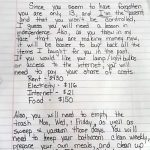 Since you seem to have forgotten
you are only 13, and I'm the parent
and that you won't be controlled,
I guess you will need a lesson in
independence. Also, as you threw in my
face that you are making money now,
it will be easier to buy back all the
items I bought for you in the past.
If you would like your lamp/lightbulbs
or access to the internet you will
need to pay your share of costs.
Rent - $430
Electricity - $116
Internet - $21
Food - $150
Also, you will need to empty the
trash Mon, Wed, & Friday, as well as
sweep & vacuum those days. You will
need to keep your bathroom clean weekly,
prepare your own meals, and clean up